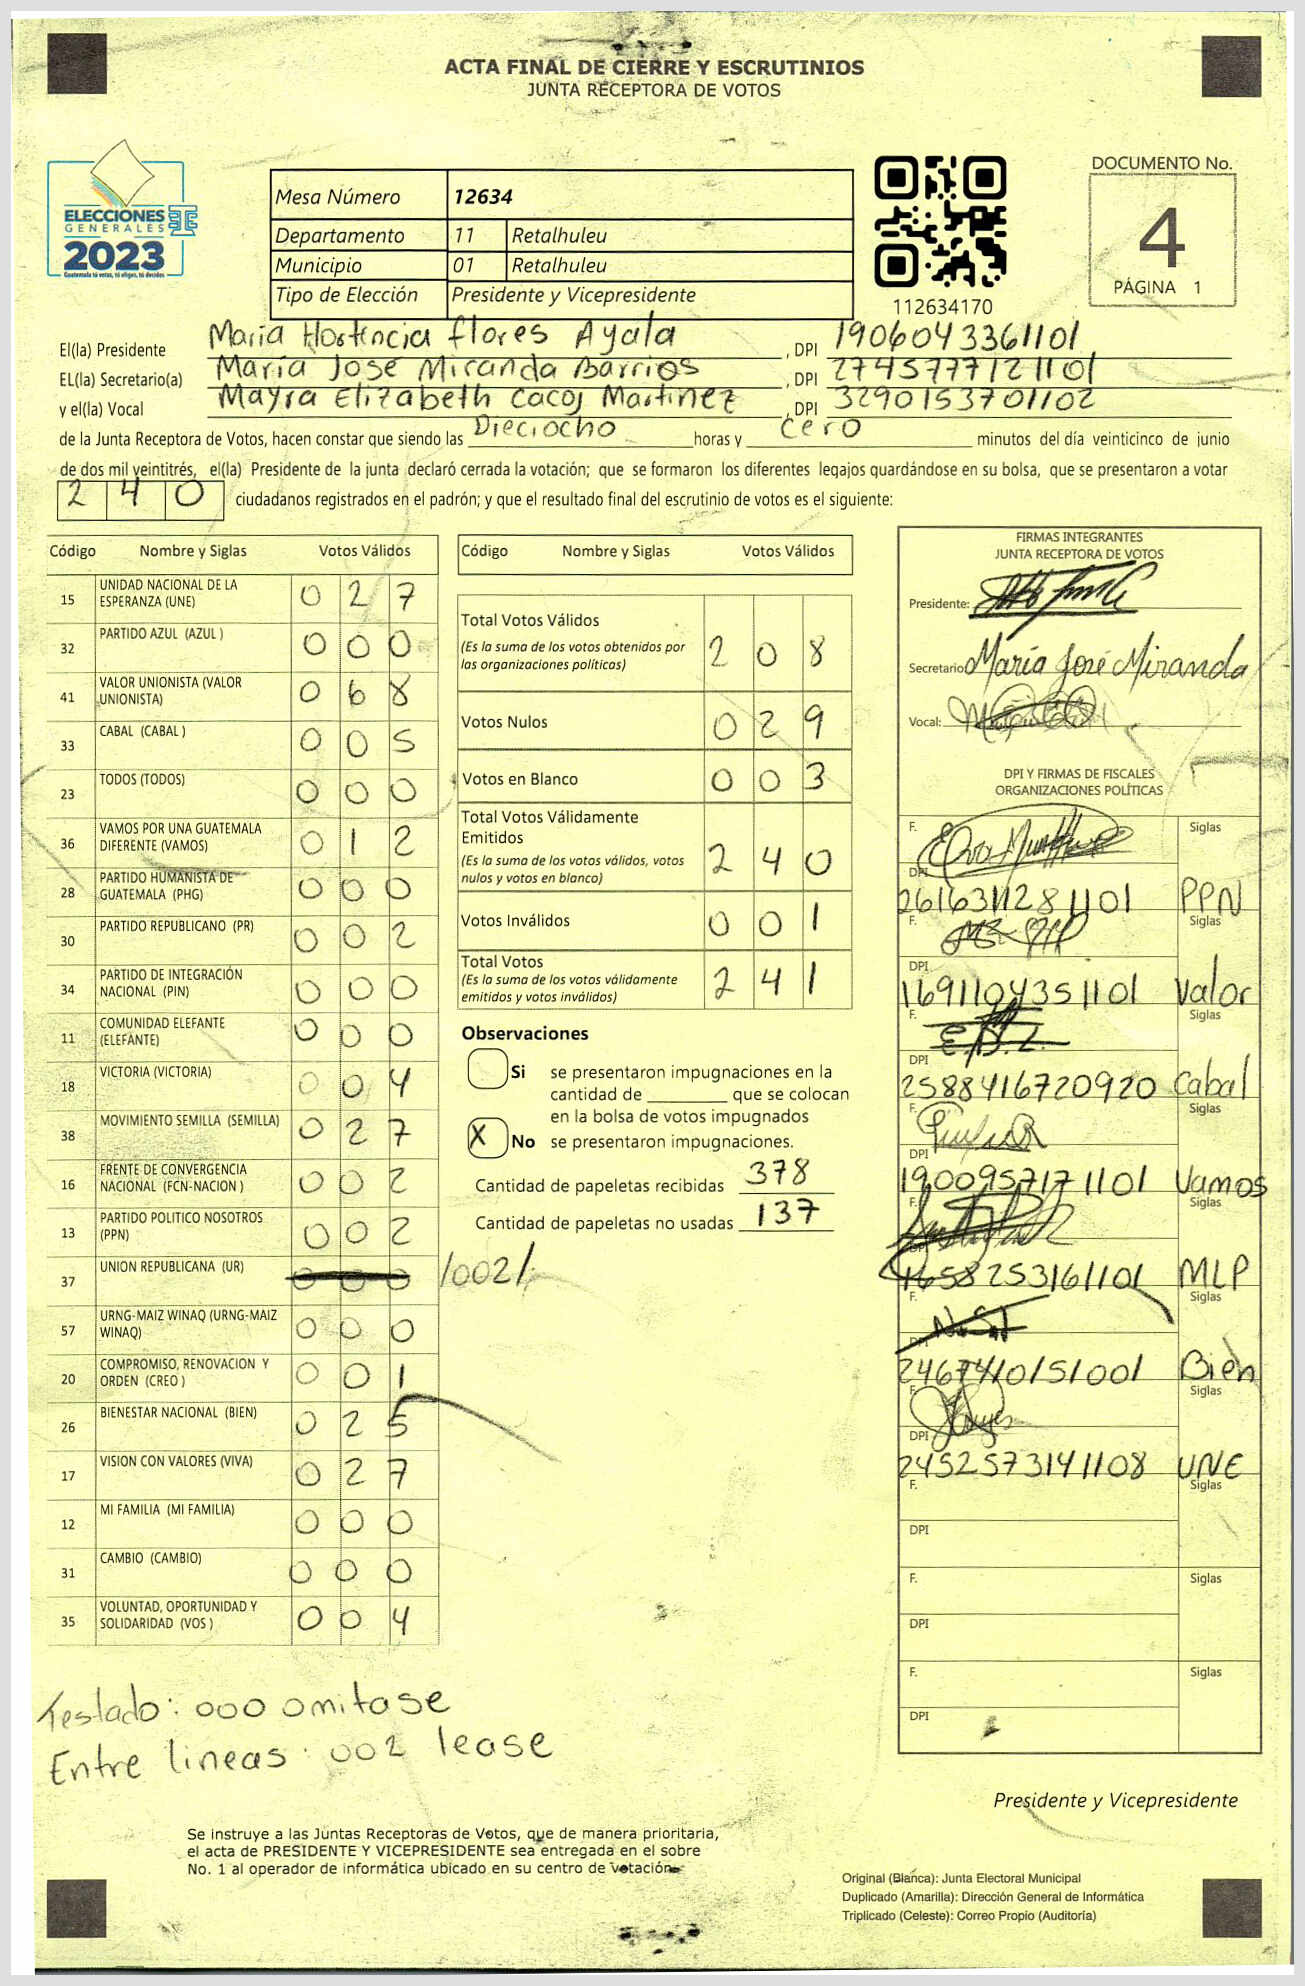 ACTA FINAL DE CIERRE Y ESCRUTINIOS
JUNTA RECEPTORA DE VOTOS
ELECCIONES
GENERALES
2023
Guatemala tú votas, tú eliges, tú decides
Mesa Número 12634
Departamento 11 Retalhuleu
Municipio 01 Retalhuleu
Tipo de Elección Presidente y Vicepresidente
112634170
DOCUMENTO No.
4
PÁGINA 1
El(la) Presidente Maria Hortencia flores Ayala , DPI 1906043361101
EL(la) Secretario(a) María José Miranda Barrios , DPI 2745777121101
y el(la) Vocal Mayra Elizabeth Cacoj Martinez , DPI 3290153701102
de la Junta Receptora de Votos, hacen constar que siendo las Dieciocho horas y Cero minutos del día veinticinco de junio
de dos mil veintitrés, el(la) Presidente de la junta declaró cerrada la votación; que se formaron los diferentes legajos guardándose en su bolsa, que se presentaron a votar
240 ciudadanos registrados en el padrón; y que el resultado final del escrutinio de votos es el siguiente:
Código Nombre y Siglas Votos Válidos
15 UNIDAD NACIONAL DE LA ESPERANZA (UNE) 027
32 PARTIDO AZUL (AZUL ) 000
41 VALOR UNIONISTA (VALOR UNIONISTA) 068
33 CABAL (CABAL ) 005
23 TODOS (TODOS) 000
36 VAMOS POR UNA GUATEMALA DIFERENTE (VAMOS) 012
28 PARTIDO HUMANISTA DE GUATEMALA (PHG) 000
30 PARTIDO REPUBLICANO (PR) 002
34 PARTIDO DE INTEGRACIÓN NACIONAL (PIN) 000
11 COMUNIDAD ELEFANTE (ELEFANTE) 000
18 VICTORIA (VICTORIA) 004
38 MOVIMIENTO SEMILLA (SEMILLA) 027
16 FRENTE DE CONVERGENCIA NACIONAL (FCN-NACION ) 002
13 PARTIDO POLITICO NOSOTROS (PPN) 002
37 UNION REPUBLICANA (UR) 000 /002/
57 URNG-MAIZ WINAQ (URNG-MAIZ WINAQ) 000
20 COMPROMISO, RENOVACION Y ORDEN (CREO ) 001
26 BIENESTAR NACIONAL (BIEN) 025
17 VISION CON VALORES (VIVA) 027
12 MI FAMILIA (MI FAMILIA) 000
31 CAMBIO (CAMBIO) 000
35 VOLUNTAD, OPORTUNIDAD Y SOLIDARIDAD (VOS ) 004
Código Nombre y Siglas Votos Válidos
Total Votos Válidos 208
(Es la suma de los votos obtenidos por
las organizaciones políticas)
Votos Nulos 029
Votos en Blanco 003
Total Votos Válidamente
Emitidos 240
(Es la suma de los votos válidos, votos
nulos y votos en blanco)
Votos Inválidos 001
Total Votos 241
(Es la suma de los votos válidamente
emitidos y votos inválidos)
Observaciones
Si se presentaron impugnaciones en la
cantidad de ________ que se colocan
en la bolsa de votos impugnados
X No se presentaron impugnaciones.
Cantidad de papeletas recibidas 378
Cantidad de papeletas no usadas 137
FIRMAS INTEGRANTES
JUNTA RECEPTORA DE VOTOS
Presidente:
Secretario María José Miranda
Vocal:
DPI Y FIRMAS DE FISCALES
ORGANIZACIONES POLÍTICAS
F. Siglas
DPI 2616311281101 PPN
F. Siglas
DPI 1691104351101 Valor
F. Siglas
DPI 2588416720920 Cabal
F. Siglas
DPI 1900957171101 Vamos
F. Siglas
DPI 1658253161101 MLP
F. Siglas
DPI 2467410151001 Bien
F. Siglas
DPI 2452573141108 UNE
F. Siglas
DPI
F. Siglas
DPI
F. Siglas
DPI
Testado: 000 omitase
Entre lineas: 002 lease
Presidente y Vicepresidente
Se instruye a las Juntas Receptoras de Votos, que de manera prioritaria,
el acta de PRESIDENTE Y VICEPRESIDENTE sea entregada en el sobre
No. 1 al operador de informática ubicado en su centro de votación
Original (Blanca): Junta Electoral Municipal
Duplicado (Amarilla): Dirección General de Informática
Triplicado (Celeste): Correo Propio (Auditoría)